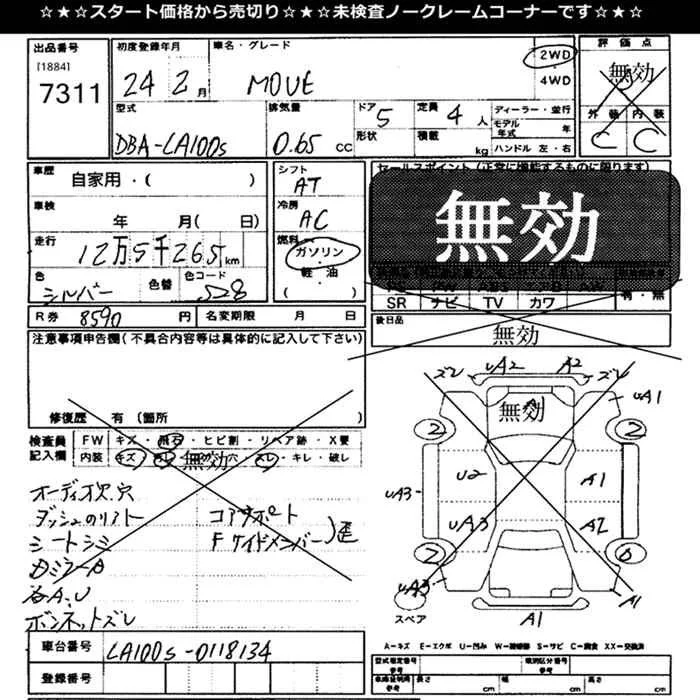 ☆★☆★スタート価格から売切り☆★☆★未検査ノークレームコーナーです☆★☆
出品番号 初度登録年月 車名・グレード 評価点
[1884] 7311
24 2月 MOVE 2WD 4WD 無効
型式 排気量 ドア 5 定員 4人 ディーラー・並行 外装 内装
DBA-LA100S 0.65 CC 形状 積載 kg モデル年式 年 ハンドル 左・右 C C
車歴 自家用・( ) シフト AT セールスポイント(正常に機能するものに限ります)
車検 年 月( 日) 冷房 AC 無効
走行 12万5千265km 燃料 ガソリン 軽・油 ( )
色 シルバー 色替 色コード S28
SR ナビ TV カワ 有・無
R券 8590円 名変期限 月 日 後日品 無効
注意事項申告欄(不具合内容等は具体的に記入して下さい)
修復歴 有(箇所 )
検査員記入欄 FW キズ・飛石・ヒビ割・リペア跡・X要
内装 キズ 無効 穴 キレ・破し
ズレ UA2 A2 ズレ UA1
無効
2 2
U2 A1
UA3 UA3 A2
2
UA3 A1
スペア A1
オーディオ欠.穴
コアサポート
シートシミ Fサイドメンバー
ボンネットズレ
車台番号 LA100S-0118134
登録番号
A=キズ E=エクボ U=凹み S=サビ C=腐食 XX=交換済
型式指定番号 参考 類別区分番号 参考
長さ cm 幅 cm 高さ cm